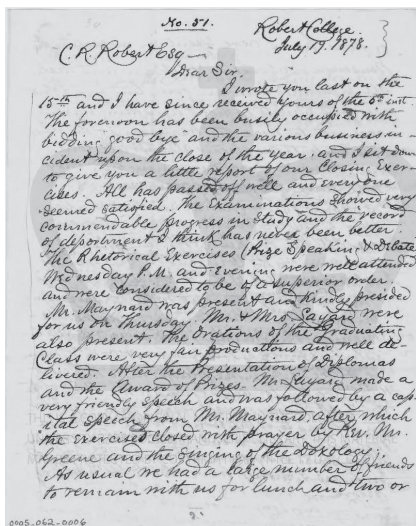 No. 51.
Robert College.
July 19. 1878.
C. R. Robert Esq
Dear Sir.
I wrote you last on the
15th and I have since received yours of the 5th inst
The forenoon has been busily occupied with
bidding "good bye" and the various business in
cident upon the close of the year. and I sit down
to give you a little report of our Closing Exer-
cises. All has passed off well and everyone
seemed satisfied. The Examinations showed very
commendable progress in study and the record
of deportment I think has never been better.
The Rhetorical Exercises (Prize Speaking & Debate)
Wednesday P.M. and Evening were well attended
and were considered to be of a superior order.
Mr. Maynard was present and kindly presided
for us on Thursday. Mr. & Mrs. Layard were
also present. The Orations of the Graduating
Class were very fair productions and well de-
livered. After the Presentation of Diplomas
and the Award of Prizes. Mr. Layard made a
very friendly speech and was followed by a cap-
ital speech from Mr. Maynard, after which
the exercises closed with prayer by Rev. Mr.
Greene and the singing of the Doxology.
As usual we had a large number of friends
to remain with us for lunch and two or
0005-062-0006